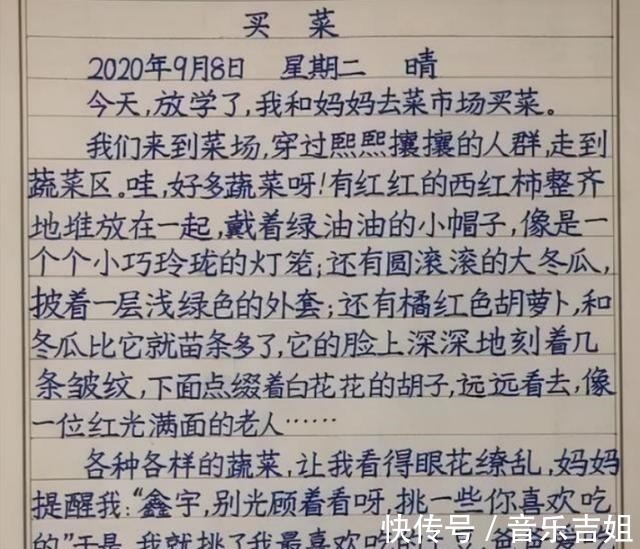 买菜
2020年9月8日 星期二 晴
今天,放学了,我和妈妈去菜市场买菜。
我们来到菜场,穿过熙熙攘攘的人群,走到
蔬菜区。哇,好多蔬菜呀!有红红的西红柿整齐
地堆放在一起,戴着绿油油的小帽子,像是一
个个小巧玲珑的灯笼;还有圆滚滚的大冬瓜,
披着一层浅绿色的外套;还有橘红色胡萝卜,和
冬瓜比它就苗条多了,它的脸上深深地刻着几
条皱纹,下面点缀着白花花的胡子,远远看去,像
一位红光满面的老人……
各种各样的蔬菜,让我看得眼花缭乱,妈妈
提醒我:“鑫宇,别光顾着看呀,挑一些你喜欢吃
的”于是,我就挑了我最喜欢吃的
快传号/音乐吉姐